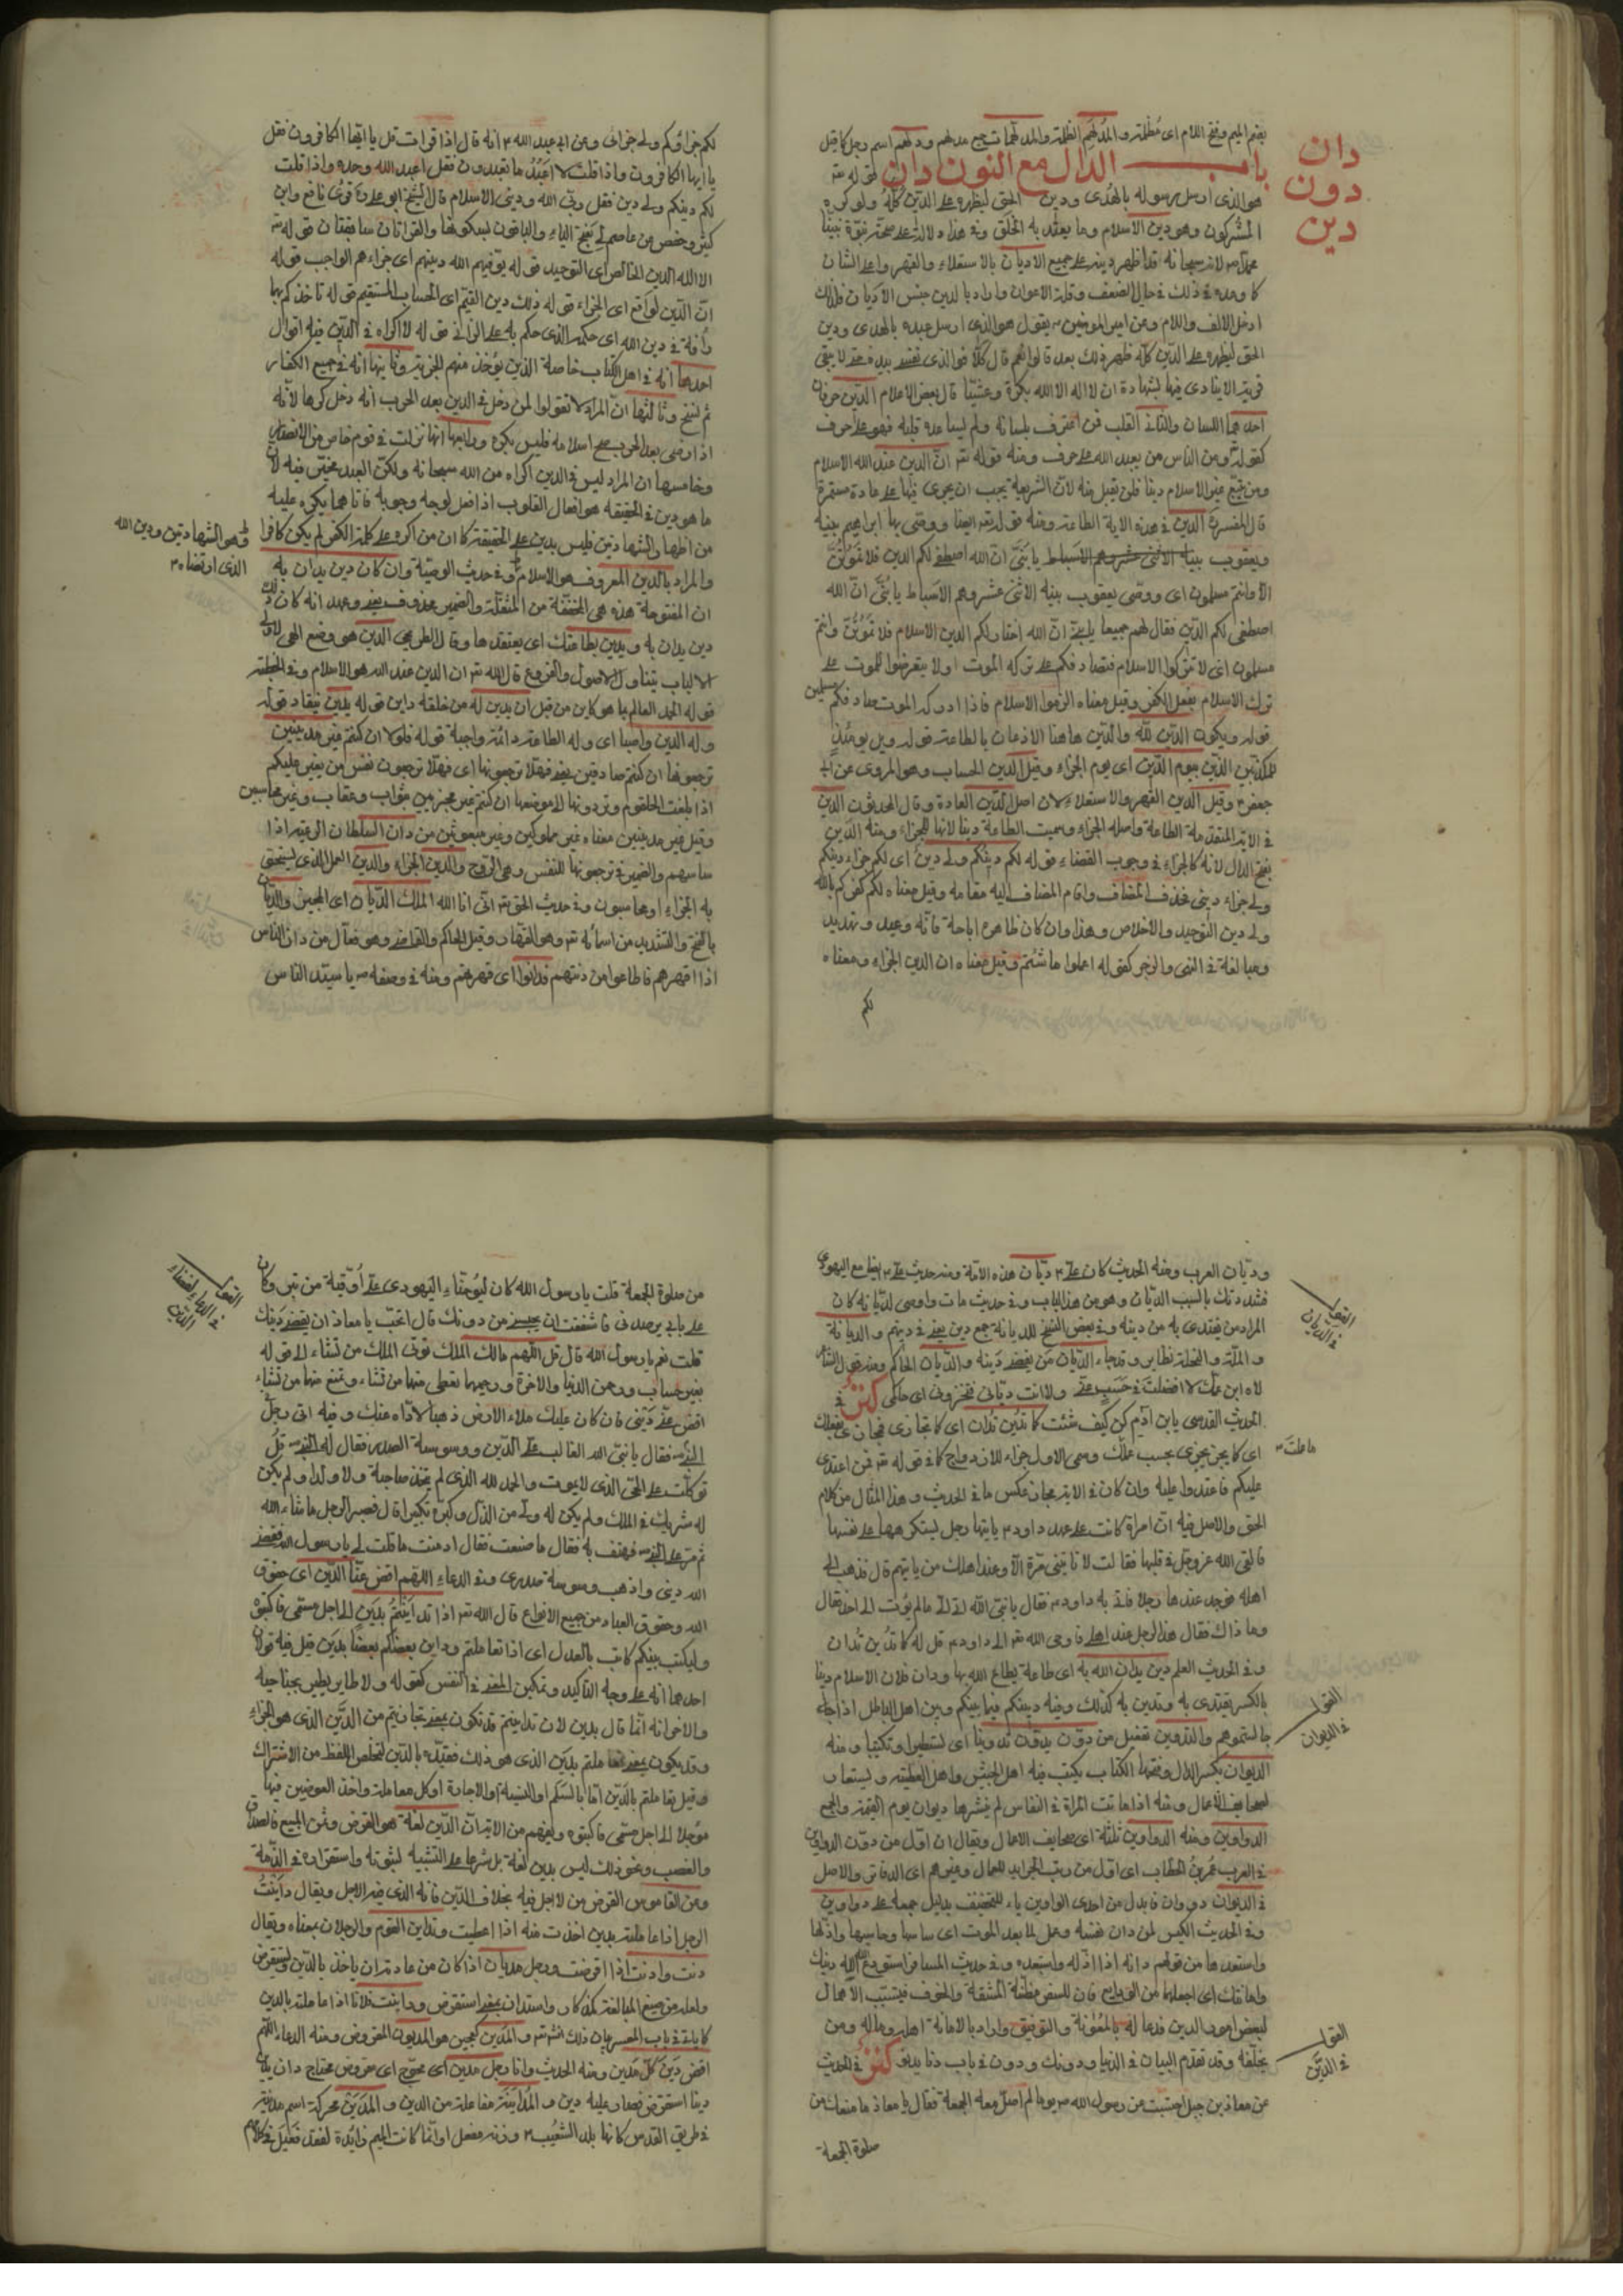 بضم الميم وفتح اللام اى مظلمة والمدلهم الظلمة والمدلهمات جمع مدلهم ودلهم اسم رجل كما قيل
باب الدال مع النون دان قوله تعه
دان
دون
دين
هو الذى ارسل رسوله بالهدى ودين الحق ليظهره على الدين كله ولو كره
المشركون وهو دين الاسلام وما يعتقد به الخلق وفى هذا دلالة على صحة نبوة نبينا
محمد ص لانه سبحانه قد اظهر دينه على جميع الاديان بالاستعلاء والقهر واعلاء الشان
كما وعده فى ذلك فى حال الضعف وقلة الاعوان واراد بالدين جنس الاديان فلذلك
ادخل الالف واللام وعن امير المومنين يقول هو الذى ارسل عبده بالهدى ودين
الحق ليظهره على الدين كله ظهر ذلك بعد قالوا نعم قال كلا فوالذى نفسى بيده حتى لا يبقى
قرية الا ينادى فيها بشهادة ان لا اله الا الله بكرة وعشيا قال بعض الاعلام الدين حرفان
احدهما اللسان والثانى القلب فمن اعترف بلسانه ولم يساعده قلبه فهو على حرف
كقوله ومن الناس من يعبد الله على حرف ومنه قوله تعه ان الدين عند الله الاسلام
ومن يبتغ غير الاسلام دينا فلن يقبل منه لان الشريعة يجب ان يجرى فيها على عادة مستمرة
قال المفسر الدين فى هذه الاية الطاعة ومنه قوله تعه ايضا ووصى بها ابراهيم بنيه
ويعقوب بنيه الاثنى عشر وهم الاسباط يا بنى ان الله اصطفى لكم الدين فلا تموتن
الا وانتم مسلمون اى ووصى يعقوب بنيه الاثنى عشر وهم الاسباط يا بنى ان الله
اصطفى لكم الدين فقال لهم جميعا يا بنى ان الله اختار لكم الدين الاسلام فلا تموتن وانتم
مسلمون اى لا تتركوا الاسلام فيصادفكم على تركه الموت او لا تتعرضوا للموت على
ترك الاسلام بفعل الكفر وقيل معناه الزموا الاسلام فاذا ادرككم الموت صادفكم مسلمين
قوله ويكون الدين لله والدين هاهنا الاذعان بالطاعة قوله ويل يومئذ
للمكذبين الذين بيوم الدين اى يوم الجزاء وقيل الدين الحساب وهو المروى عن ابى
جعفر ع وقيل الدين القهر والاستعلاء لان اصل الدين العادة وقال المحدثون الدين
فى الاية المتقدمة الطاعة واصله الجزاء وسميت الطاعة دينا لانها للجزاء ومنه الدين
بفتح الدال لانه كالجزاء فى وجوب القضاء قوله لكم دينكم ولى دين اى لكم جزاء دينكم
ولى جزاء دينى فحذف المضاف واقام المضاف اليه مقامه وقيل معناه لكم كفركم بالله
ولى دين التوحيد والاخلاص وهذا وان كان ظاهره اباحة فانه وعيد وتهديد
ومبالغة فى النهى والزجر كقوله اعملوا ما شئتم وقيل معناه ان الدين الجزاء ومعناه
لكم
لكم جزاؤكم ولى جزائى وعن ابى عبد الله ع انه قال اذا قرات قل يا ايها الكافرون فقل
يا ايها الكافرون واذا قلت لا اعبد ما تعبدون فقل اعبد الله وحده واذا قلت
لكم دينكم ولى دين فقل ربى الله ودينى الاسلام قال الشيخ ابو على وقرئ نافع وابن
كثير وحفص عن عاصم لى بفتح الياء والباقون بسكونها والقرائتان سايغتان قوله تعه
الا لله الدين الخالص اى التوحيد قوله يوفيهم الله دينهم اى جزاءهم الواجب قوله
ان الدين لواقع اى الجزاء قوله ذلك دين القيم اى الحساب المستقيم قوله تاخذكم بهما
رأفة فى دين الله اى حكمه الذى حكم به على الزانى قوله لا اكراه فى الدين فيه اقوال
احدها انه فى اهل الكتاب خاصة الذين يؤخذ منهم الجزية وثانيها انه فى جميع الكفار
ثم نسخ وثالثها ان المراد لا تقولوا لمن دخل فى الدين بعد الحرب انه دخل كرها لانه
اذا رضى بعد الحرب صح اسلامه فليس بكره ورابعها انها نزلت فى قوم خاص من الانصار
وخامسها ان المراد ليس فى الدين اكراه من الله سبحانه ولكن العبد مخير فيه لان
ما هو دين فى الحقيقة هو افعال القلوب اذا فعل لوجه وجوبه فاما ما يكره عليه
من اظهار الشهادتين فليس بدين على الحقيقة كما ان من اكره على كلمة الكفر لم يكن كافرا
وهو الشهادتين ودين الله
الذى ارتضاه
والمراد بالدين المعروف هو الاسلام وفى حديث الوصية وان كان دين يدان به
ان المفتوحة هذه هى المخففة من المثقلة والضمير محذوف يعنى وعهد انه كان ذلك
دين يدان به ويدين بطاعتك اى يعتقدها وقال الطريحى الدين هو وضع الهى لاولى
الالباب يتناول الاصول والفروع قال الله تعه ان الدين عند الله هو الاسلام وفى الخطبة
قوله الحمد العالم بما هو كاين من قبل ان يدين له من خلقه داين قوله يدين ينقاد قوله
وله الدين واصبا اى وله الطاعة دائمة واجبة قوله فلولا ان كنتم غير مدينين
ترجعونها ان كنتم صادقين يعنى فهلا ترجعونها اى فهلا ترجعون نفس من يعز عليكم
اذا بلغت الحلقوم وتردونها الى موضعها ان كنتم غير مجزيين بثواب وعقاب وغير محاسبين
وقيل غير مدينين معناه غير مملوكين وغير مبعوثين من دان السلطان الرعية اذا
ساسهم والضمير فى ترجعونها للنفس وهى الروح والدين الجزاء والدين العمل الذى يستحق
به الجزاء او محاسبون وفى حديث الحق تعه انى انا الله الملك الديان اى المجيز والديان
بالفتح والتشديد من اسمائه تعه وهو القهار وقيل الحاكم والقاضى وهو فعال من دان الناس
اذا قهرهم فاطاعوا من دنتهم فدانوا اى قهرتهم ومنه فى وصفه ص يا سيد الناس
وديان العرب ومنه الحديث كان على ع ديان هذه الامة ومنه حديث على ع مع اليهودى
القول
فى الديان
المراد من يقتدى به من دينه وفى بعض النسخ للديانة جمع دين يعنى فى دينهم والديانة
والملة والنحلة نظاير وقد جاء الديان من يقضى دينه والديان الحاكم ومنه قول الشاعر
لاه ابن عمك لا افضلت فى حسب عنى ولا انت ديانى فتخزونى اى حاكمى كنز فى
الحديث القدسى يابن ادم كن كيف شئت كما تدين تدان اى كما تجازى تجازى بفعلك
ما عملت
اى كما يجزى يجزى بحسب عملك وسمى الاول جزاء للازدواج كما فى قوله تعه فمن اعتدى
عليكم فاعتدوا عليه وان كان فى الاية مجاز عكس ما فى الحديث وهذا المثال من كلام
الحق والاصل فيه ان امراة كانت على عهد داود ع ياتيها رجل يستكرهها على نفسها
فالقى الله عز وجل فى قلبها فقالت لا تاتينى مرة الا وعند اهلك من ياتيهم قال فذهب الى
اهله فوجد عندها رجلا فاتى به داود ع فقال يا نبى الله اتى الى ما لم يؤت الى احد فقال
وما ذاك فقال هذا الرجل عند اهلى فاوحى الله تعه الى داود ع قل له كما تدين تدان
وفى الحديث العلم دين يدان الله به اى طاعة يطاع الله بها ودان فلان الاسلام دينا
بالكسر يقتدى به وتدين به كذلك وفيه دينكم فيما بينكم وبين اهل الباطل اذا
القول
فى الديوان
جالستموهم والتدوين تفعيل من دون يدون تدوينا اى تسطيرا وتكتيبا ومنه
الديوان بكسر الدال وفتحها الكتاب يكتب فيه اهل الجيش واهل العطية ويستعار
لصحايف الاعمال ومنه اذا ماتت المراة فى النفاس لم ينشر لها ديوان يوم القيمة والجمع
الدواوين ومنه الدواوين ثلثة اى صحايف الاعمال ويقال ان اول من دون الدواوين
فى العرب عمر بن الخطاب اى اول من رتب الجرايد للعمال وغيرهم اى الدفاتر والاصل
فى الديوان دووان فابدل من احدى الواوين ياء للتخفيف بدليل جمعه على دواوين
وفى الحديث الكيس لمن دان نفسه وعمل لما بعد الموت اى ساسها وحاسبها واذلها
واستعبدها من قولهم دانه اذا اذله واستعبده وفى حديث المسافر استودع الله دينك
وامانتك اى اجعلهما من الودايع فان للسفر مظنة المشقة والخوف فيتسبب الاهمال
لبعض امور الدين فدعا له بالمعونة والتوفيق واراد بالامانة اهله وماله ومن
القول
فى الدين
يخلفه وقد تقدم البيان فى الدنيا ودونك ودون فى باب دنا يدنو كنز فى الحديث
عن معاذ بن جبل احتبست عن رسول الله ص يوما لم اصل معه الجمعة فقال يا معاذ ما منعك من
صلوة الجمعة
من صلوة الجمعة قلت يا رسول الله كان ليوحنا اليهودى على اوقية من تبر وكان
القول
فى الدعاء لقضاء
الدين
على بابى يرصدنى فاشفقت ان يحبسنى من دونك قال اتحب يا معاذ ان يقضى دينك
قلت نعم يا رسول الله قال قل اللهم مالك الملك تؤتى الملك من تشاء الى قوله
بغير حساب ورحمن الدنيا والاخرة ورحيمهما تعطى منهما من تشاء وتمنع منهما من تشاء
اقض عنى دينى فان كان عليك ملاء الارض ذهبا لاداه عنك وفيه اتى رجل
النبى ص فقال يا نبى الله الغالب على الدين ووسوسة الصدر فقال له النبى ص قل
توكلت على الحى الذى لا يموت والحمد لله الذى لم يتخذ صاحبة ولا ولدا ولم يكن
له شريك فى الملك ولم يكن له ولى من الذل وكبره تكبيرا قال فصبر الرجل ما شاء الله
ثم مر على النبى ص فهتف به فقال ما صنعت فقال ادمنت ما قلت لى يا رسول الله فقضى
الله دينى واذهب وسوسة صدرى وفى الدعاء اللهم اقض عنا الدين اى حقوق
الله وحقوق العباد من جميع الانواع قال الله تعه اذا تداينتم بدين الى اجل مسمى فاكتبوه
وليكتب بينكم كاتب بالعدل اى اذا تعاملتم وداين بعضكم بعضا بدين قيل فيه قولان
احدهما انه على وجه التاكيد وتمكين المعنى فى النفس كقوله ولا طاير يطير بجناحيه
والاخر انه انما قال بدين لان تداينتم قد تكون بمعنى تجازيتم من الدين الذى هو الجزاء
وقد يكون بمعنى تعاملتم بدين الذى هو ذلك فقيده بالدين لتخلص اللفظ من الاشتراك
وقيل تعاملتم بالدين اما بالسلم او النسية او الاجارة او كل معاملة واخذ العوضين فيها
مؤجلا الى اجل مسمى فاكتبوه ويفهم من الاية ان الدين لغة هو القرض وثمن المبيع فالصداق
والغصب ونحو ذلك ليس بدين لغة بل شرعا على التشبيه لثبوته واستقراره فى الذمة
وعن القاموس القرض من لا اجل فيه بخلاف الدين فانه الذى فيه الاجل ويقال داينت
الرجل اذا عاملته بدين اخذت منه اذا اعطيت وتداين القوم والرجلان بمعناه ويقال
دنت وادنت اذا اقرضت ورجل مديان اذا كان من عادته ان ياخذ بالدين ويستقرض
ولعله من صيغ المبالغة كمذكار واستدان بمعنى استقرض وداينت فلانا اذا عاملته بالدين
كما ياتى فى باب المعسر بيان ذلك انشاء تعه والمدين كمجين هو المديون المقروض ومنه الدعاء اللهم
اقض دين كل مدين ومنه الحديث وانا رجل مدين اى محتوج اى مقروض محتاج دان يدين
دينا استقرض فصار عليه دين والمداينة مفاعلة من الدين والمدين محركة اسم مدينة
فى طريق القدس كانها بلد الشعيب ع وزنه مفعل او انما كانت الميم زائدة لفقد فعيل فى كلام